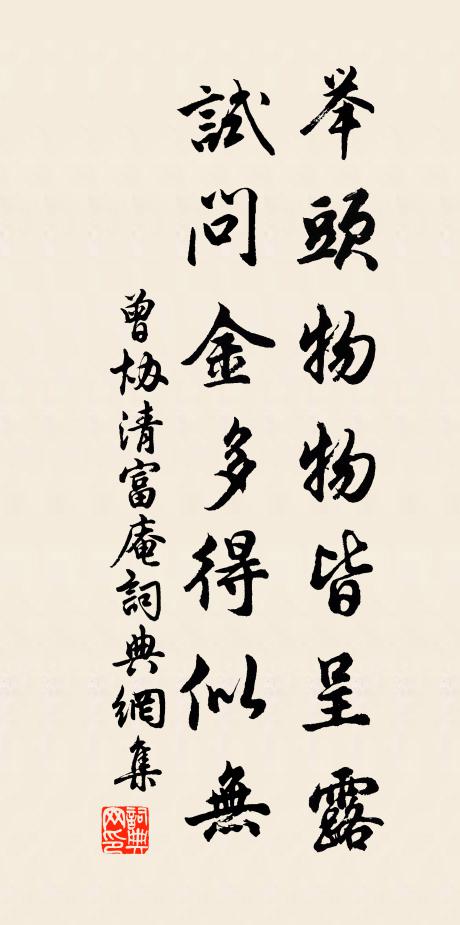 举頭物物皆呈露
試問金多得似無
曾协清富庵詞典網集
詞典网印